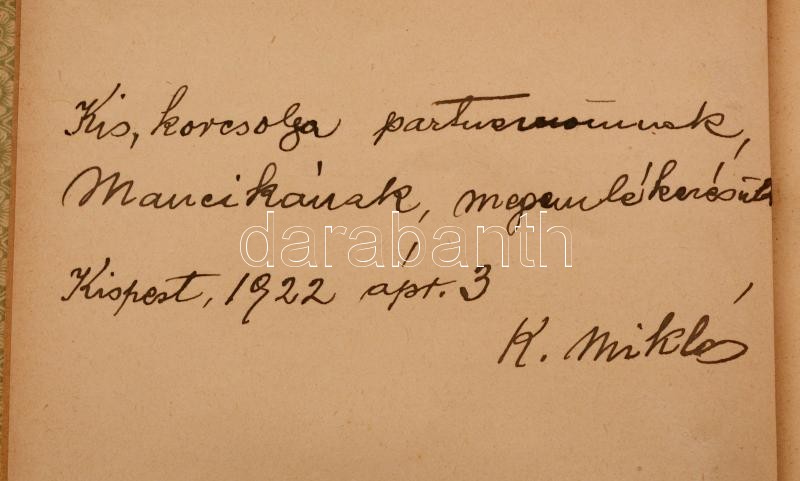 Kis, korcsolya partnernőmnek,
Mancikának, megemlékezésül
darabanth
Kispest, 1922 ápr. 3
K. Miklós